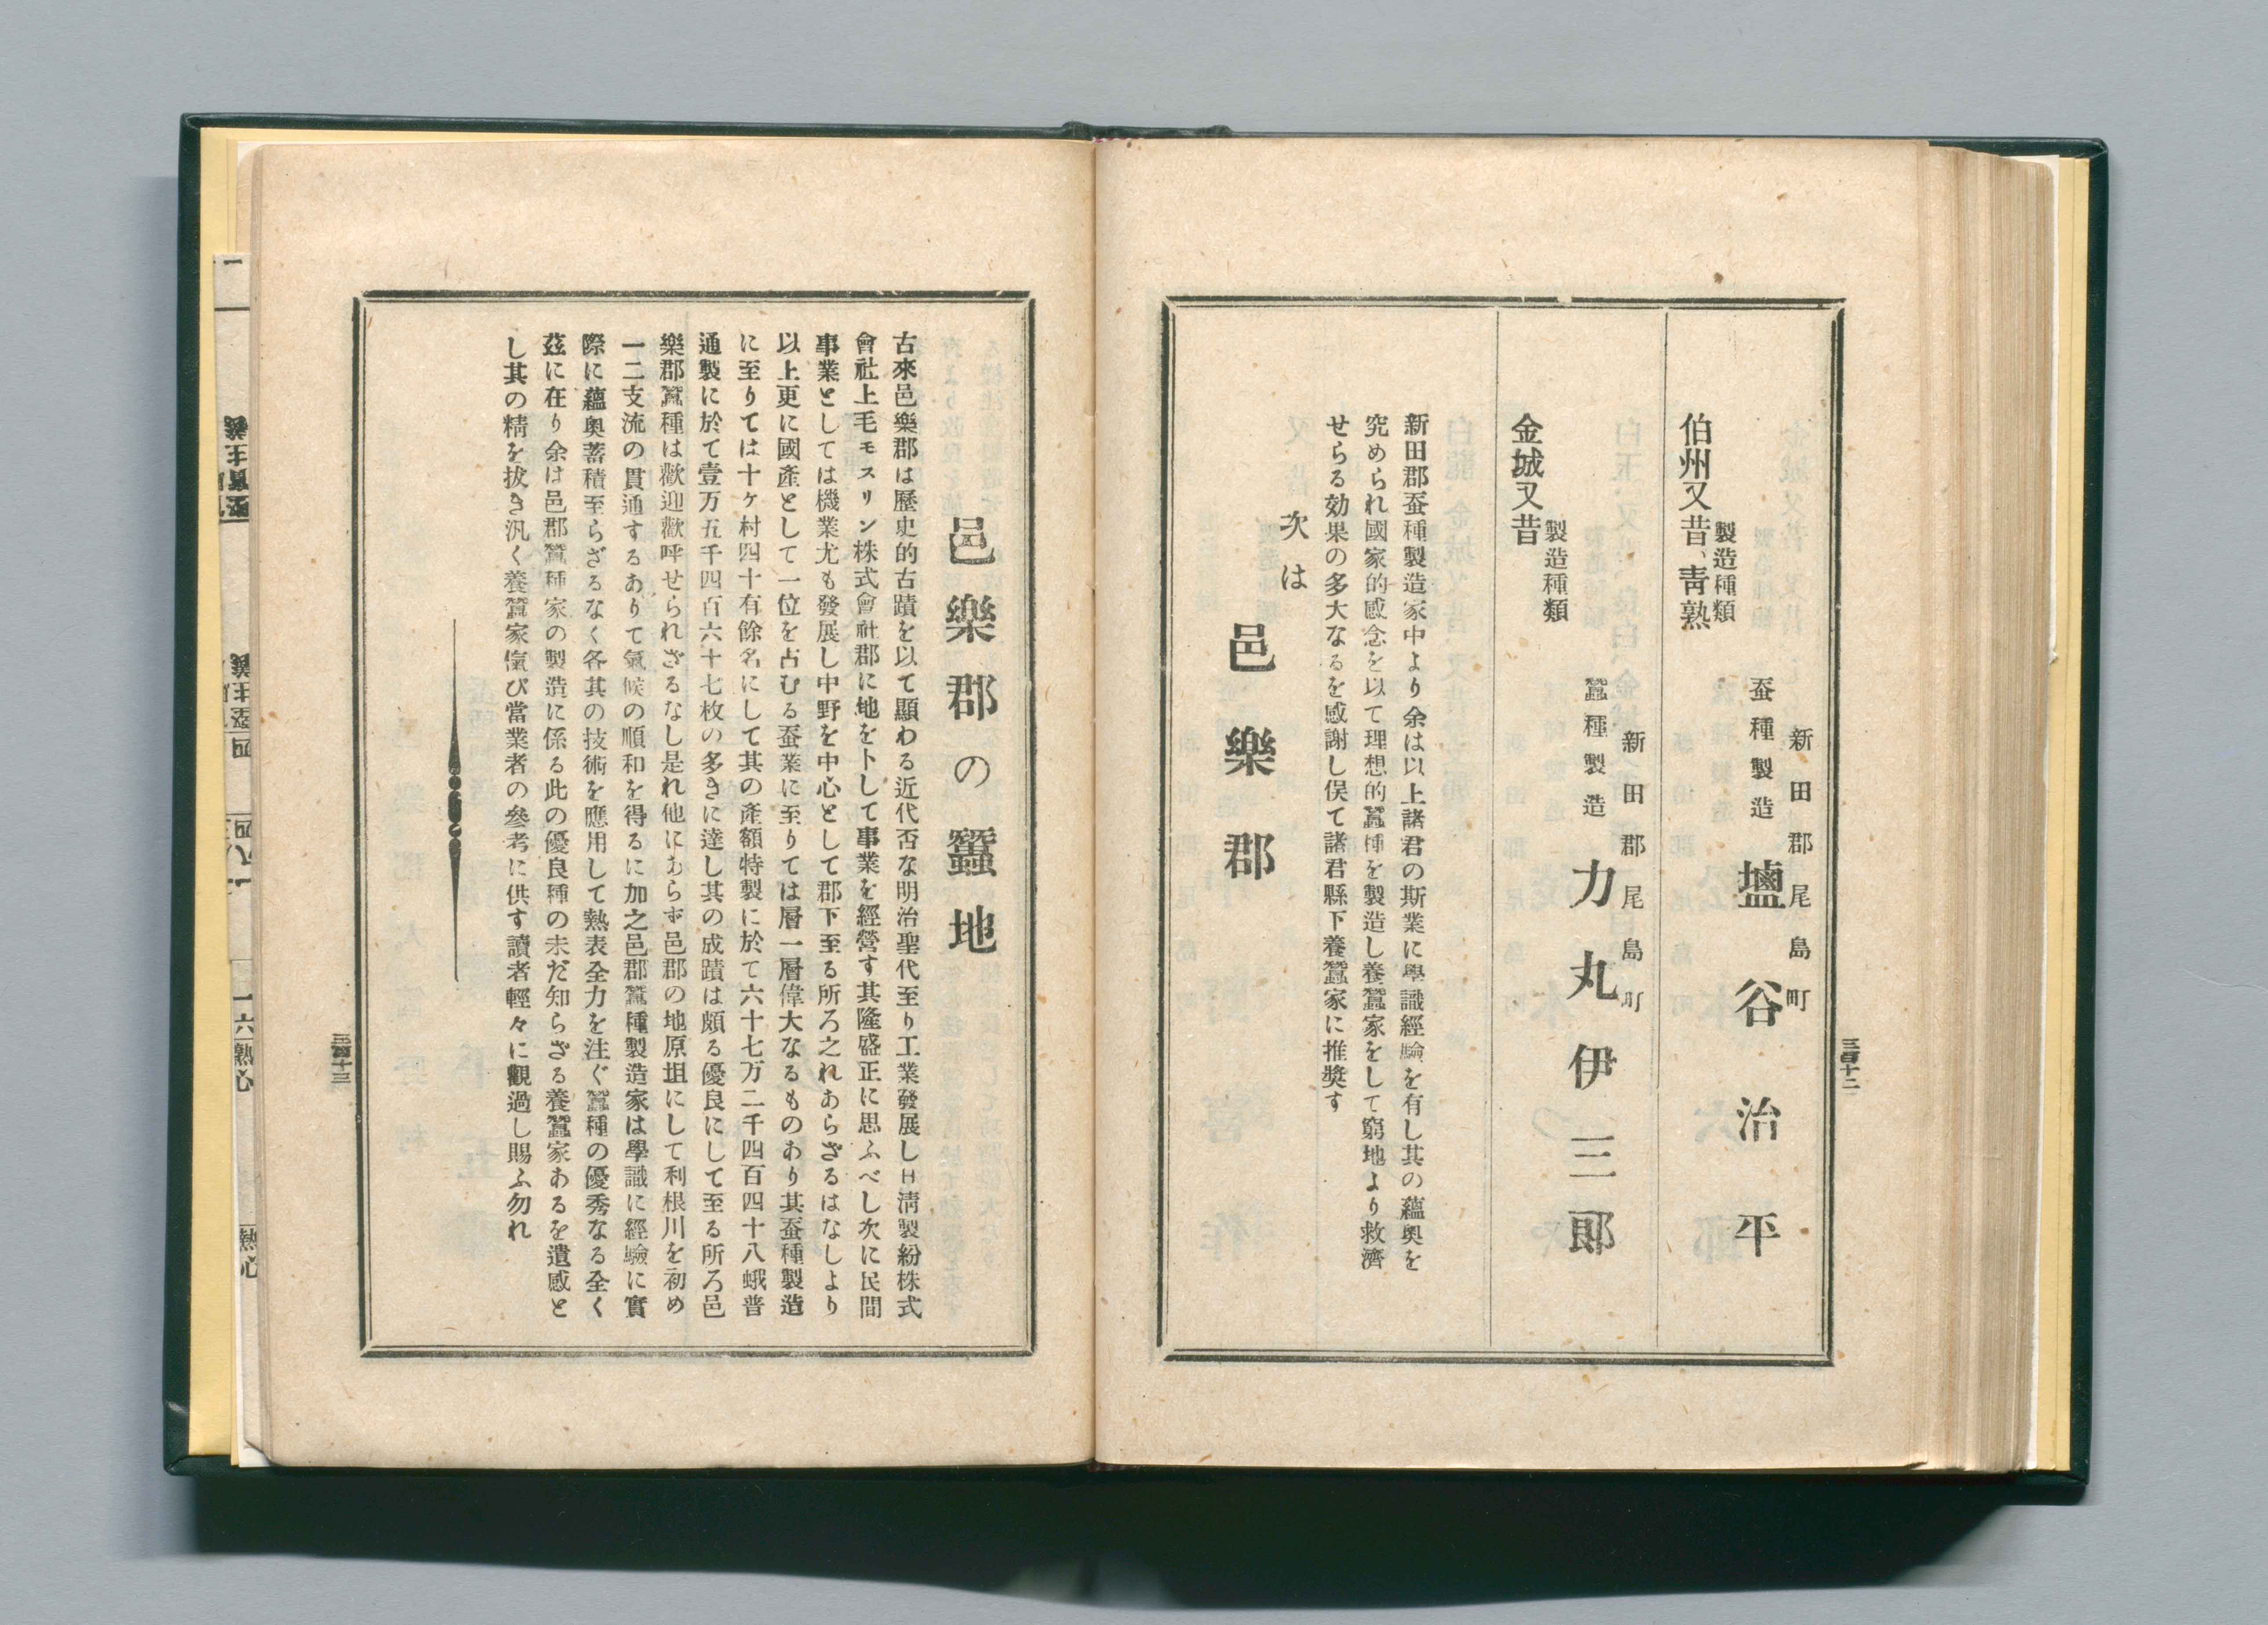 三百十二
新田郡尾島町
蚕種製造 塩谷治平
製造種類
伯州又昔、青熟
新田郡尾島町
蠶種製造 力丸伊三郎
製造種類
金城又昔
新田郡蚕種製造家中より余は以上諸君の斯業に學識經驗を有し其の蘊奥を
究められ國家的感念を以て理想的蠶種を製造し養蠶家をして窮地より救濟
せらる効果の多大なるを感謝し俟て諸君縣下養蠶家に推奬す
次は
邑樂郡
邑樂郡の蠶地
古來邑樂郡は歴史的古蹟を以て顯わる近代否な明治聖代至り工業發展し日清製紛株式
會社上毛モスリン株式會社郡に地を卜して事業を經營す其隆盛正に思ふべし次に民間
事業としては機業尤も發展し中野を中心として郡下至る所ろ之れあらざるはなしより
以上更に國產として一位を占むる蚕業に至りては層一層偉大なるものあり其蚕種製造
に至りては十ヶ村四十有餘名にして其の產額特製に於て六十七万二千四百四十八蛾普
通製に於て壹万五千四百六十七枚の多きに達し其の成蹟は頗る優良にして至る所ろ邑
樂郡蠶種は歡迎歡呼せられざるなし是れ他にあらず邑郡の地原坦にして利根川を初め
一二支流の貫通するありて氣候の順和を得るに加之邑郡蠶種製造家は學識に經驗に實
際に蘊奥蓄積至らざるなく各其の技術を應用して熱表全力を注ぐ蠶種の優秀なる全く
茲に在り余は邑郡蠶種家の製造に係る此の優良種の未だ知らざる養蠶家あるを遺感と
し其の精を拔き汎く養蠶家儦び當業者の參考に供す讀者輕々に觀過し賜ふ勿れ
三百十三